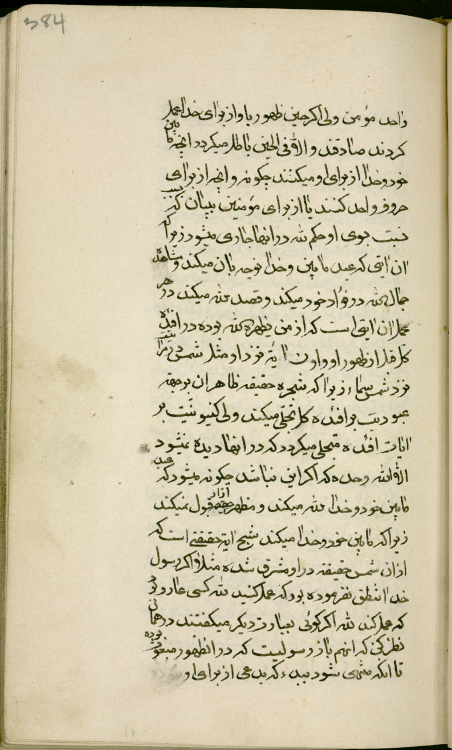 384
واحد مؤمن ولی اگر حین ظهور با و از برای خدا عمل
کردند صادقند و الا فی الحین باطل میگردد آنچه ما بین
خود و خدا از برای او میکنند چگونه و آنچه از برای
حروف واحد کنند یا از برای مؤمنین ببیان که بسبب
نسبت بسوی او حکم لله در آنها جاری میشود زیرا که
آن آیتی که عبد ما بین و خدا توجه بآن میکند و مشاهده
جمال الله در فؤاد خود میکند و قصد لله میکند در هر
عمل آن آیتی است که از من یظهره الله بوده در افئده
کل قبل از ظهور او و آن آیة نزد او مثل شمس در مرآت
نزد شمس سماء زیرا که شجره حقیقه ظاهر آن بر جهة
عبودیت بر افئده کل تجلی میکند ولی کینونیت بر
آیات افئده متجلی میگردد که در آنها دیده نمیشود
الا الله وحده که اگر این نباشد چگونه میشود که عبد
ما بین خود و خدا لله میکند و مظهر قبول نمیکند
زیرا که ما بین خود و خدا میکند شبح آیه حقیقتی است که
از آن شمس حقیقه در او مشرق شده مثلا اگر رسول
خدا نطق نفرموده بود که عمل کنید لله کسی عارف نبود
که عمل کند لله اگر گوئی بعبارت دیگر میگفتند در همان
نظر کن که آنهم باز رسولیست که در آن ظهور مبعوث بوده
تا آنکه منتهی شود ببدء که بدعی از برای او